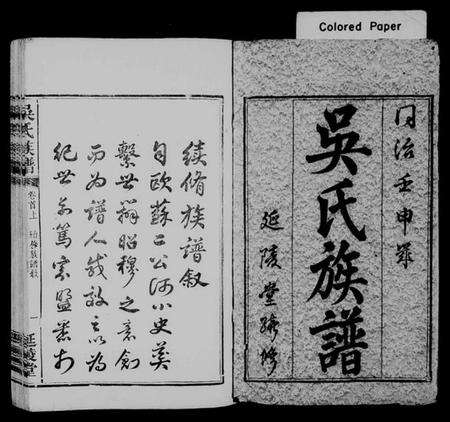 Colored Paper
同治壬申年
吳氏族譜
延陵堂
續脩族譜叙
自歐蘇二公倣小史奠
繫世辨昭穆之意創
而為譜人或效之以為
紀世系篤宗盟者
吳氏族譜
卷首上
一
延陵堂